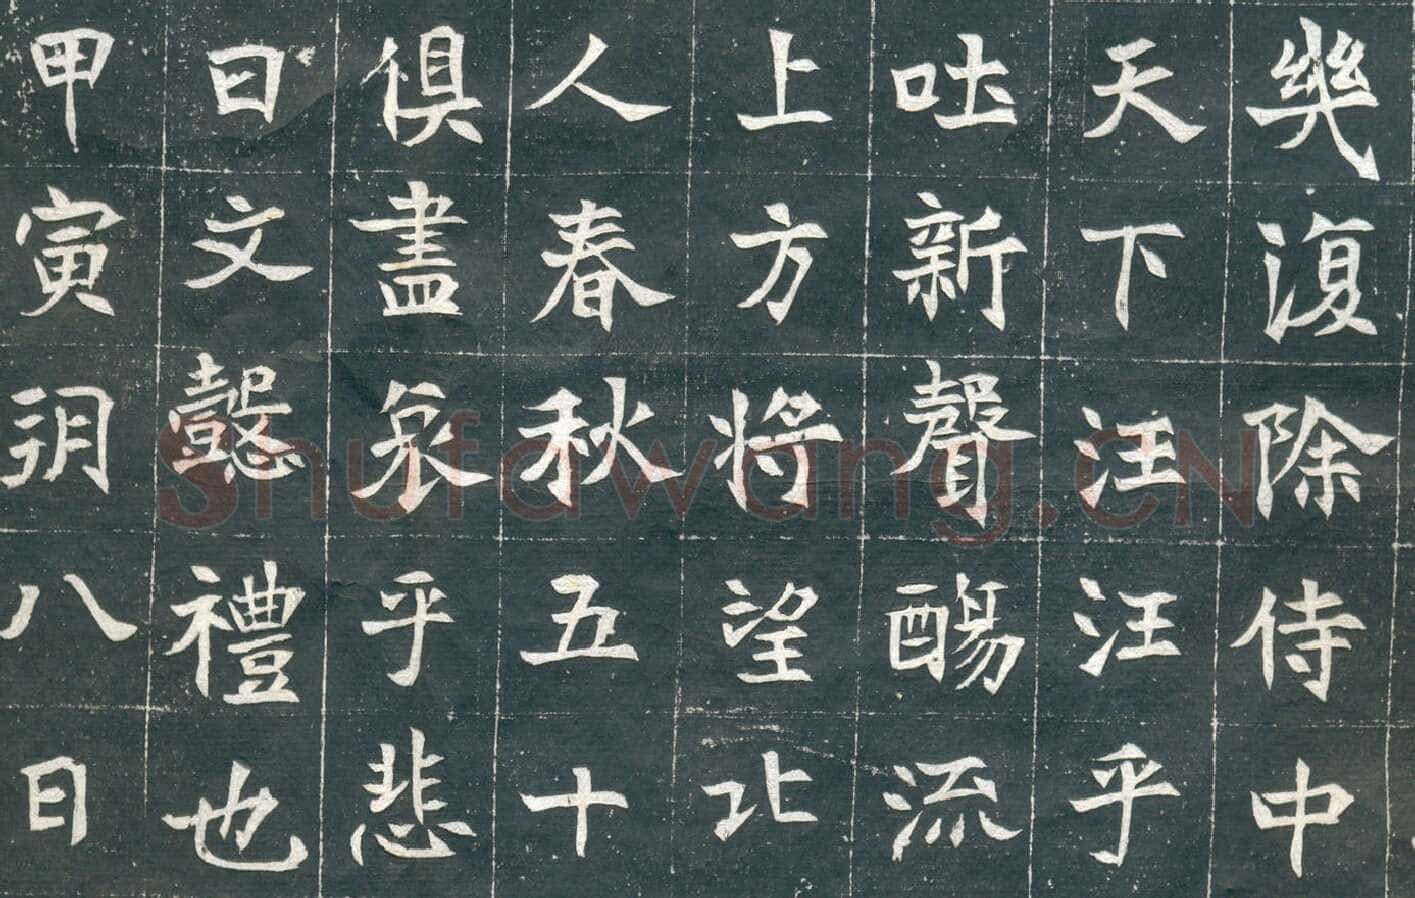 幾復除侍中
天下汪汪乎
吐新聲酾流
上方將望北
人春秋五十
俱盡哀乎悲
曰文懿禮也
甲寅朔八日
Shufawang.CN